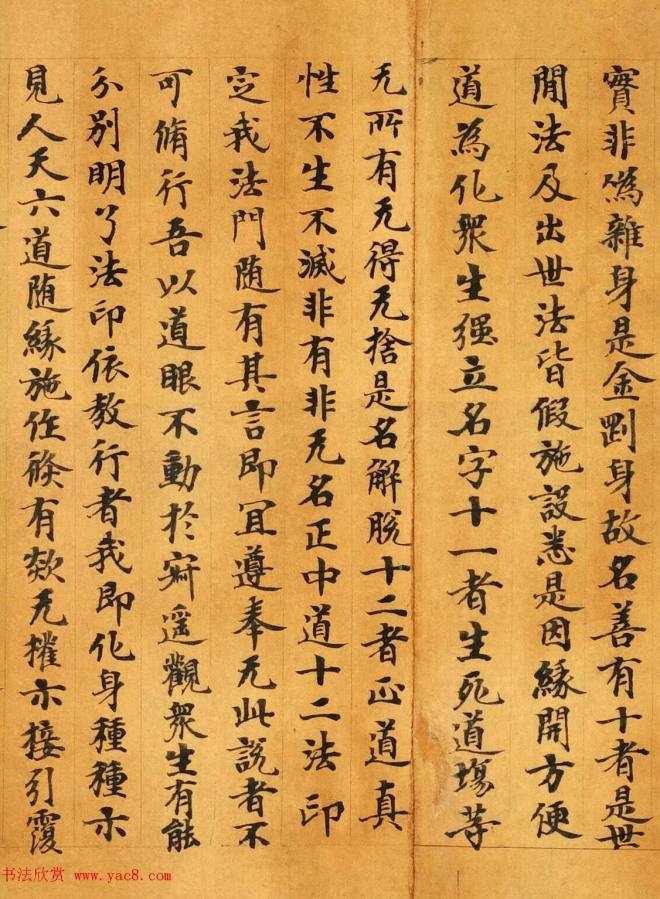 實非僞雜身是金剛身故名善有十者是世
間法及出世法皆假施設悉是因緣開方便
道為化衆生强立名字十一者生死道場等
无所有无得无捨是名解脫十二者正道真
性不生不滅非有非无名正中道十二法印
定我法門随有其言即冝遵奉无此說者不
可脩行吾以道眼不動於寂遥觀衆生有能
分别明了法印依教行者我即化身種種示
見人天六道随緣施作倏有欻无權示接引覆
书法欣赏 www.yac8.com